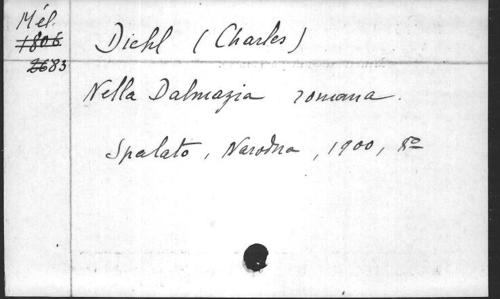 Mél.
1806
2683
Diehl (Charles)
Nella Dalmazia romana.
Spalato, Narodna, 1900, 8º